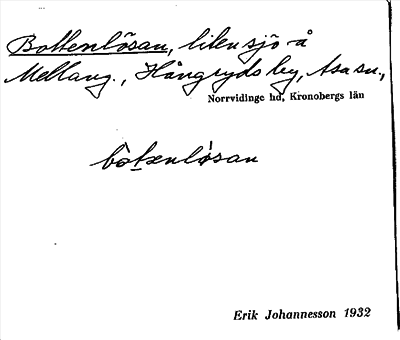 Bottenlösan, liten sjö å
Mellang., Hångryds by, Asa sn.,
Norrvidinge hd, Kronobergs län
bòtænlǿsan
Erik Johannesson 1932